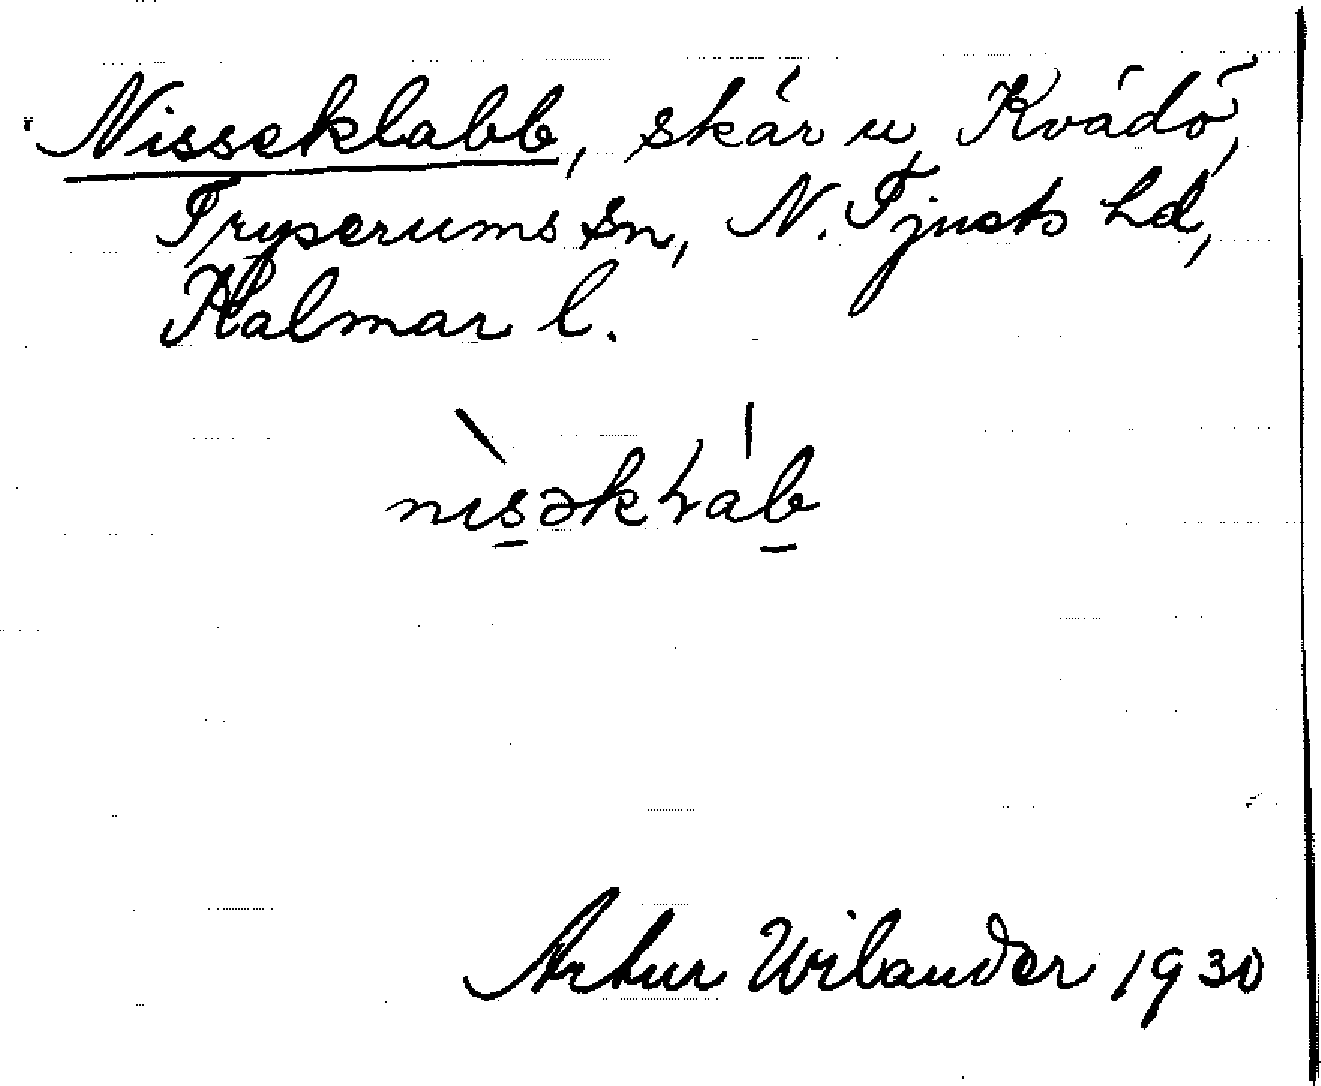 Nisseklabb, skär u Kvädö,
Tryserums sn, N. Tjusts hd,
Kalmar l.
Artur Wilander 1930